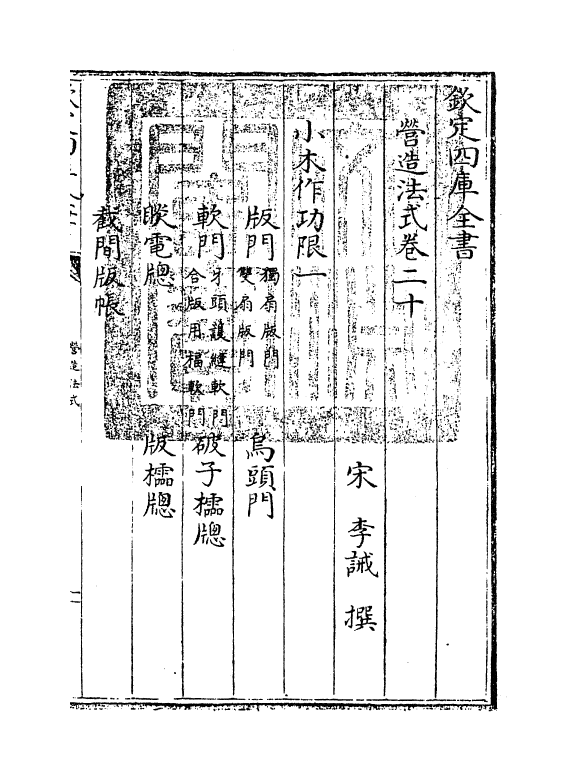 欽定四庫全書
營造法式卷二十
宋 李誡 撰
小木作功限一
版門 獨扇版門 雙扇版門 烏頭門
軟門 牙頭護縫軟門 合版用楅軟門 破子櫺牎
睒電牎 版櫺牎
截間版帳
營造法式